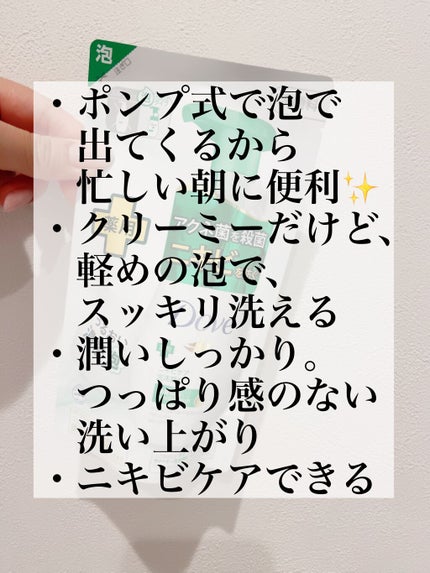 泡
・ポンプ式で泡で
出てくるから
忙しい朝に便利✨
・クリーミーだけど、
軽めの泡で、
スッキリ洗える
・潤いしっかり。
つっぱり感のない
洗い上がり
・ニキビケアできる
薬用
アクネ菌を殺菌
ニキビ
Dove